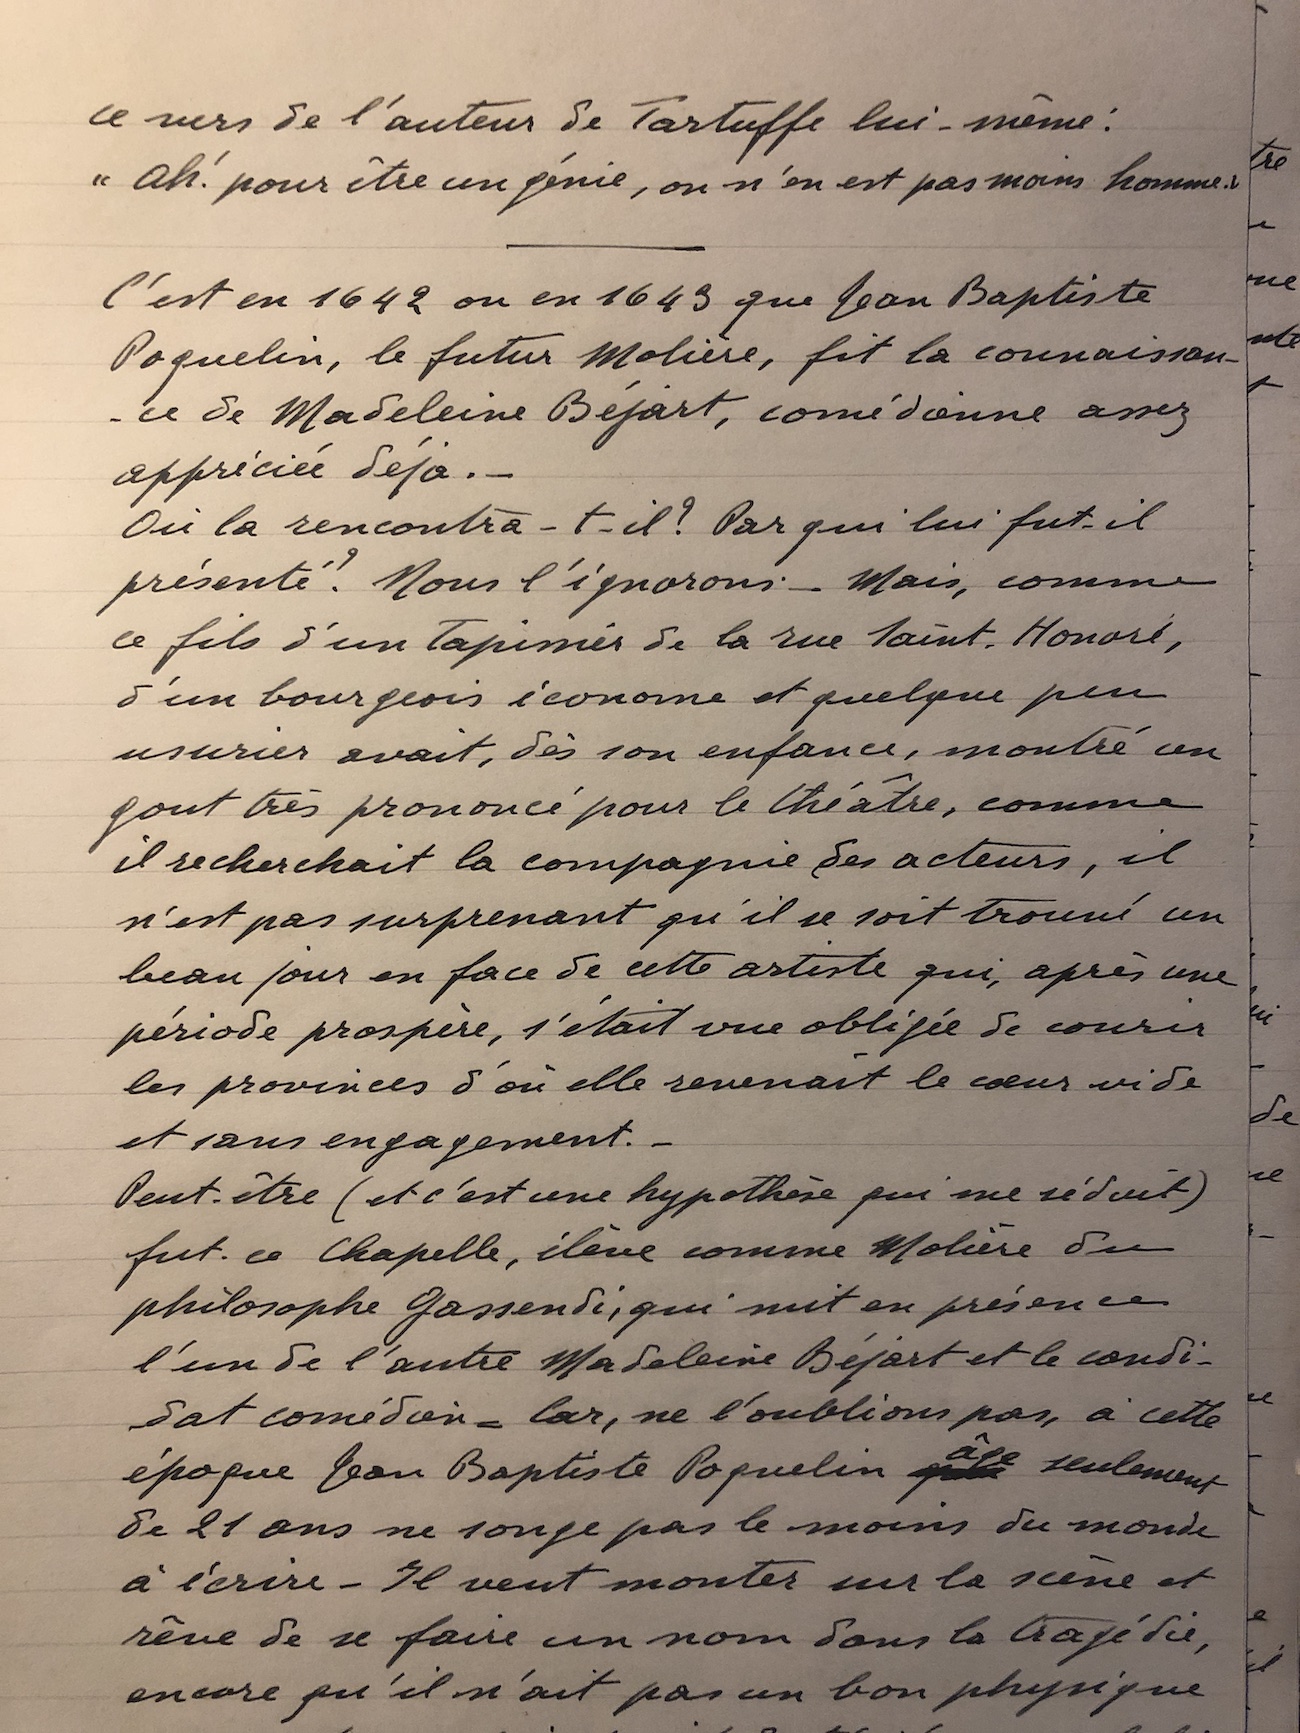 ce vers de l'auteur de Tartuffe lui-même:
" Ah! pour être un génie, on n'en est pas moins homme."
C'est en 1642 ou en 1643 que Jean Baptiste
Poquelin, le futur Molière, fit la connaissan-
-ce de Madeleine Béjart, comédienne assez
appréciée déjà.-
Où la rencontra-t-il? Par qui lui fut-il
présenté? Nous l'ignorons.- Mais, comme
ce fils d'un tapissier de la rue Saint-Honoré,
d'un bourgeois économe et quelque peu
usurier avait, dès son enfance, montré un
gout très prononcé pour le théâtre, comme
il recherchait la compagnie des acteurs, il
n'est pas surprenant qu'il se soit trouvé un
beau jour en face de cette artiste qui, après une
période prospère, s'était vue obligée de courir
les provinces d'où elle revenait le cœur vide
et sans engagement.-
Peut-être (et c'est une hypothèse qui me séduit)
fut-ce Chapelle, élève comme Molière du
philosophe Gassendi, qui mit en présence
l'un de l'autre Madeleine Béjart et le candi-
dat comédien - Car, ne l'oublions pas, à cette
époque Jean Baptiste Poquelin âgé seulement
de 21 ans ne songe pas le moins du monde
à écrire - Il veut monter sur la scène et
rêve de se faire un nom dans la tragédie,
encore qu'il n'ait pas un bon physique